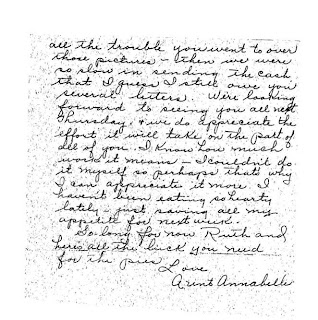 all the trouble you went to over
those pictures - then we were
so slow in sending the cash
that I guess I still owe you
several letters. We're looking
forward to seeing you all next
Thursday, & we do appreciate the
effort it will take on the part of
all of you. I know how much
work it means - I couldn't do
it myself so perhaps that's why
I can appreciate it more. I
haven't been eating so hearty
lately - just saving all my
appetite for next week.
So long for now Ruth and
here's all the luck you need
for the pies.
Love
Aunt Annabelle